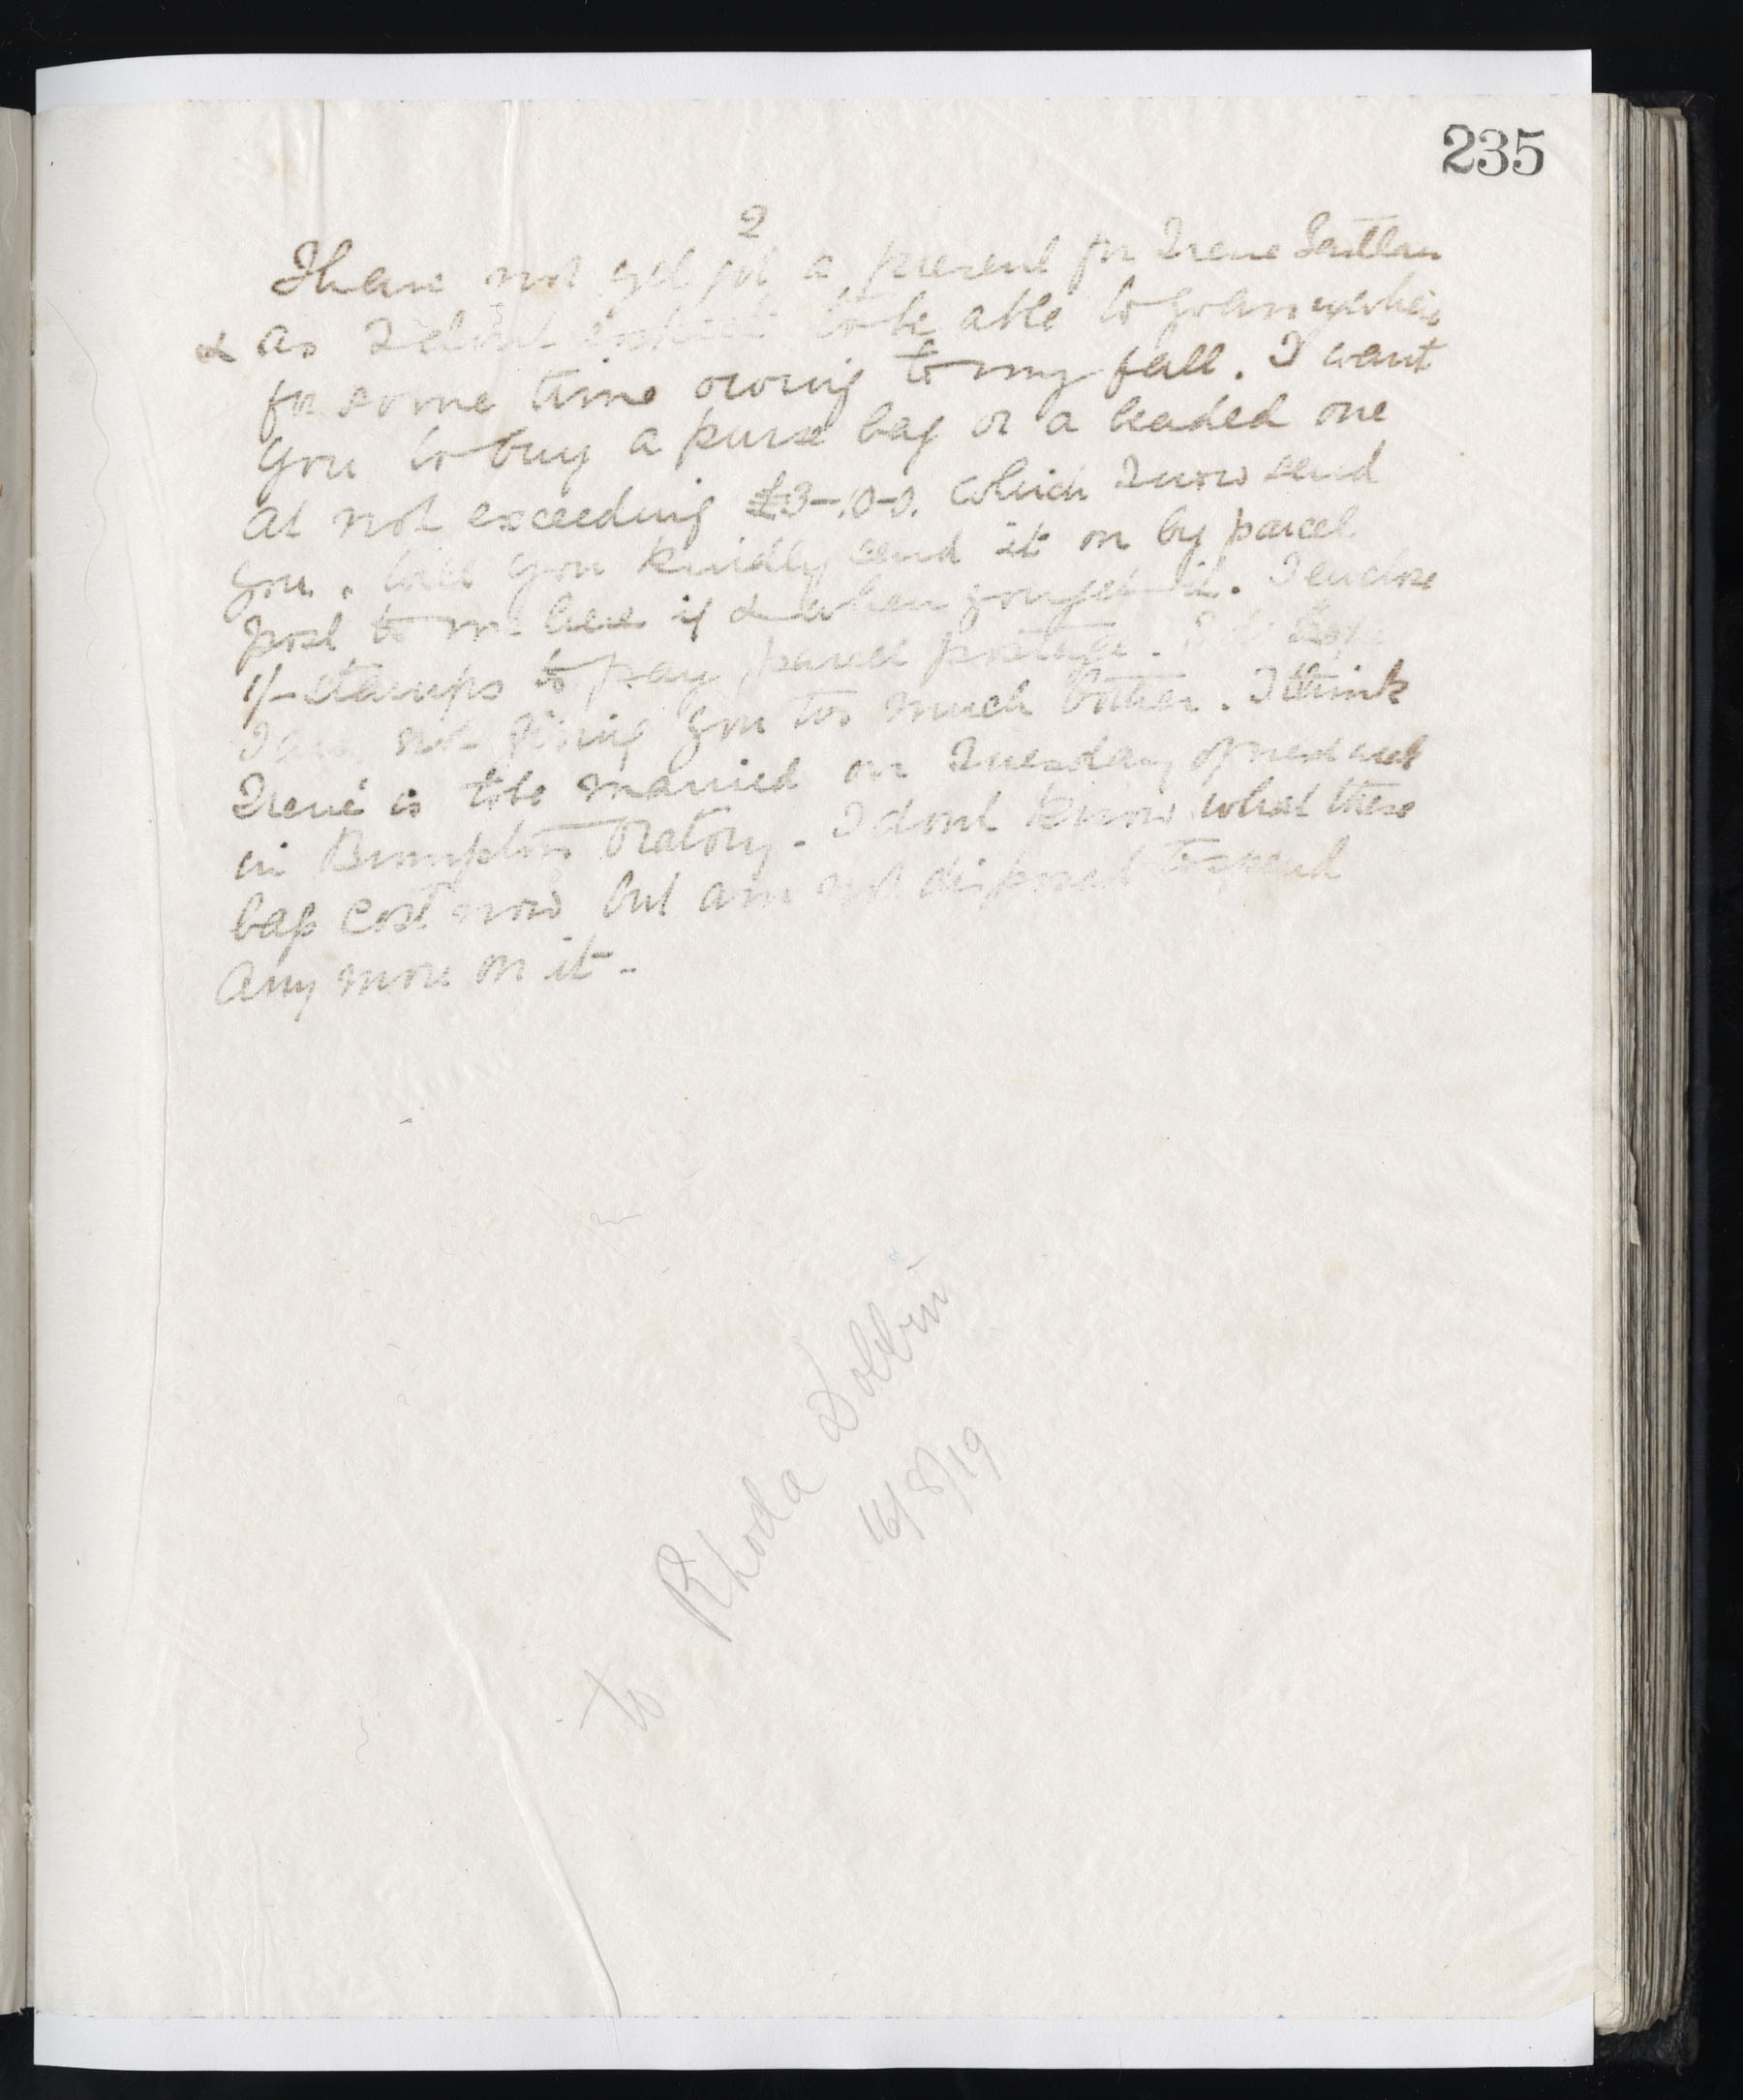 235
2
I have not yet got a present for Irene
& as I don't expect to be able to go anywhere
for some time owing to my fall. I want
you to buy a purse bag or a beaded one
at not exceeding £3-.0-0. which I now send
you. Will you kindly send it on by parcel
post to me here if & when you get it. I enclose
1/- stamps to pay parcel postage. I hope
I am not giving you too much bother. I think
Irene is to be married on Tuesday of next week
in Brompton Oratory - I dont know what these
bags cost now but am not disposed to spend
any more on it -
to Rhoda Dobbin
16/8/19